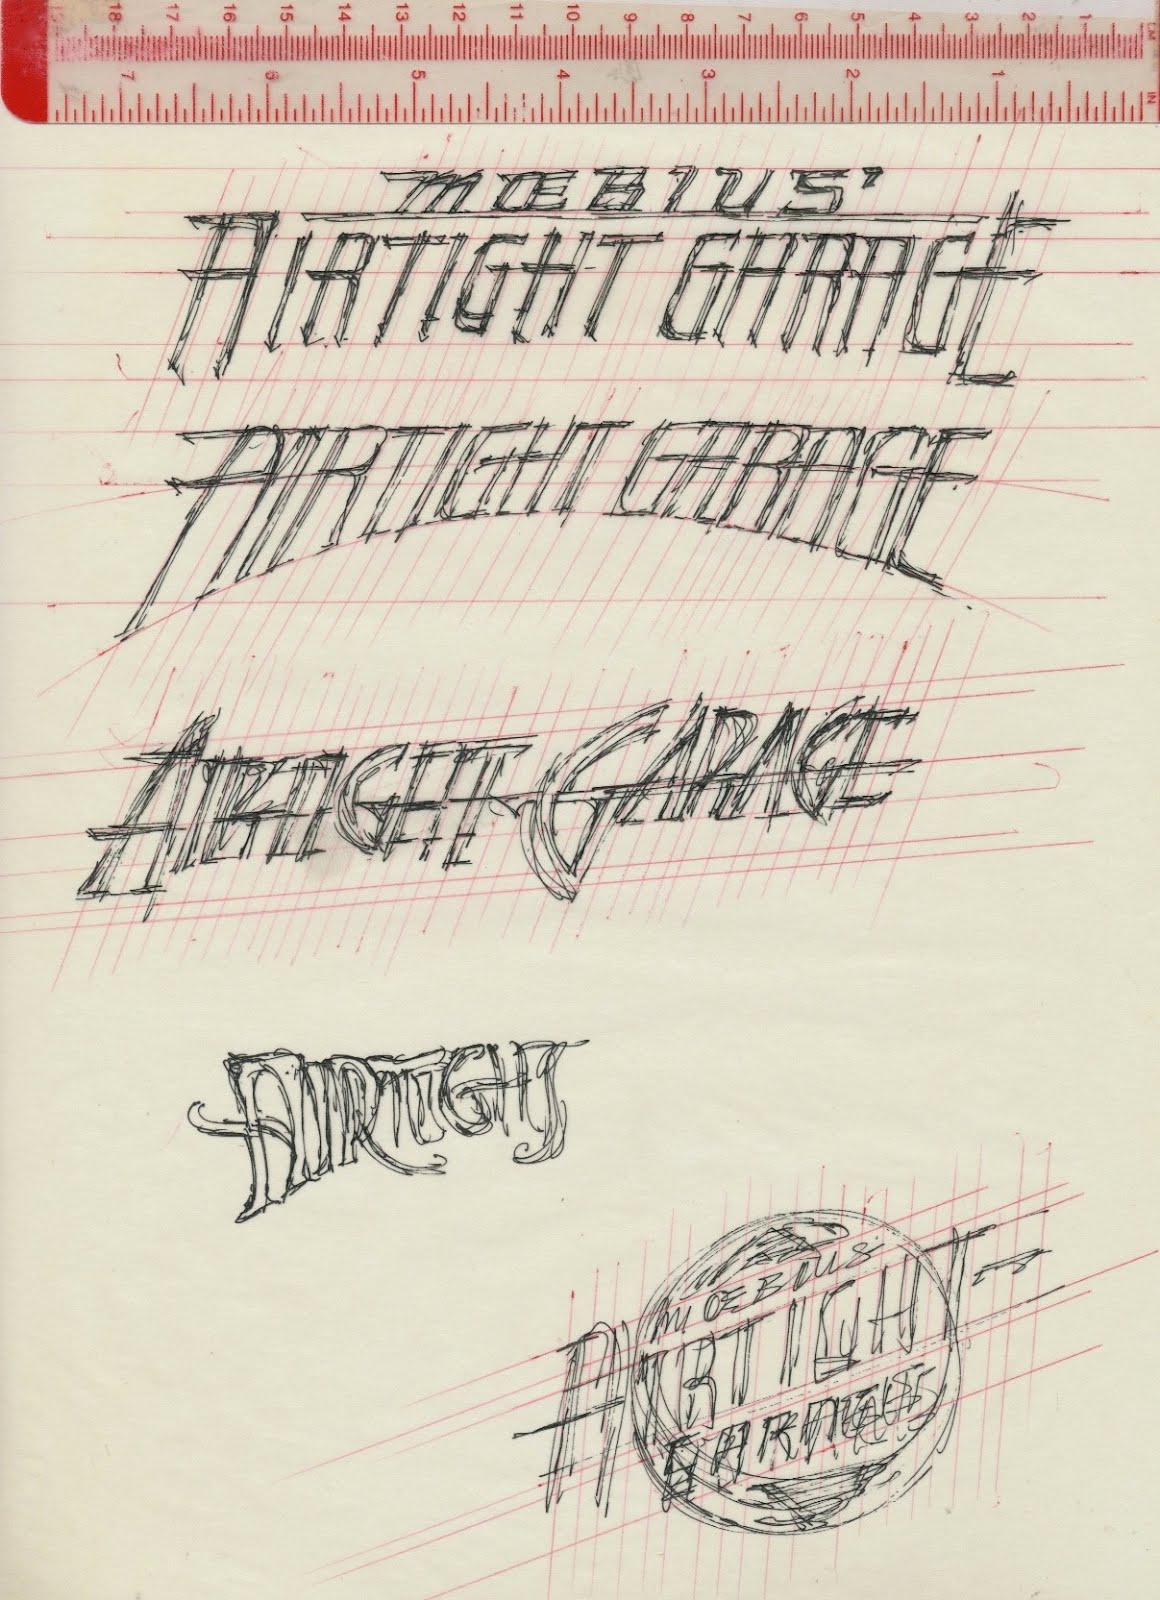 18 17 16 15 14 13 12 11 10 9 8 7 6 5 4 3 2 1 CM
7 6 5 4 3 2 1 IN
MŒBIUS'
AIRTIGHT GARAGE
AIRTIGHT GARAGE
AIRTIGHT GARAGE
AIRTIGHT
MOEBIUS
AIRTIGHT
GARAGE